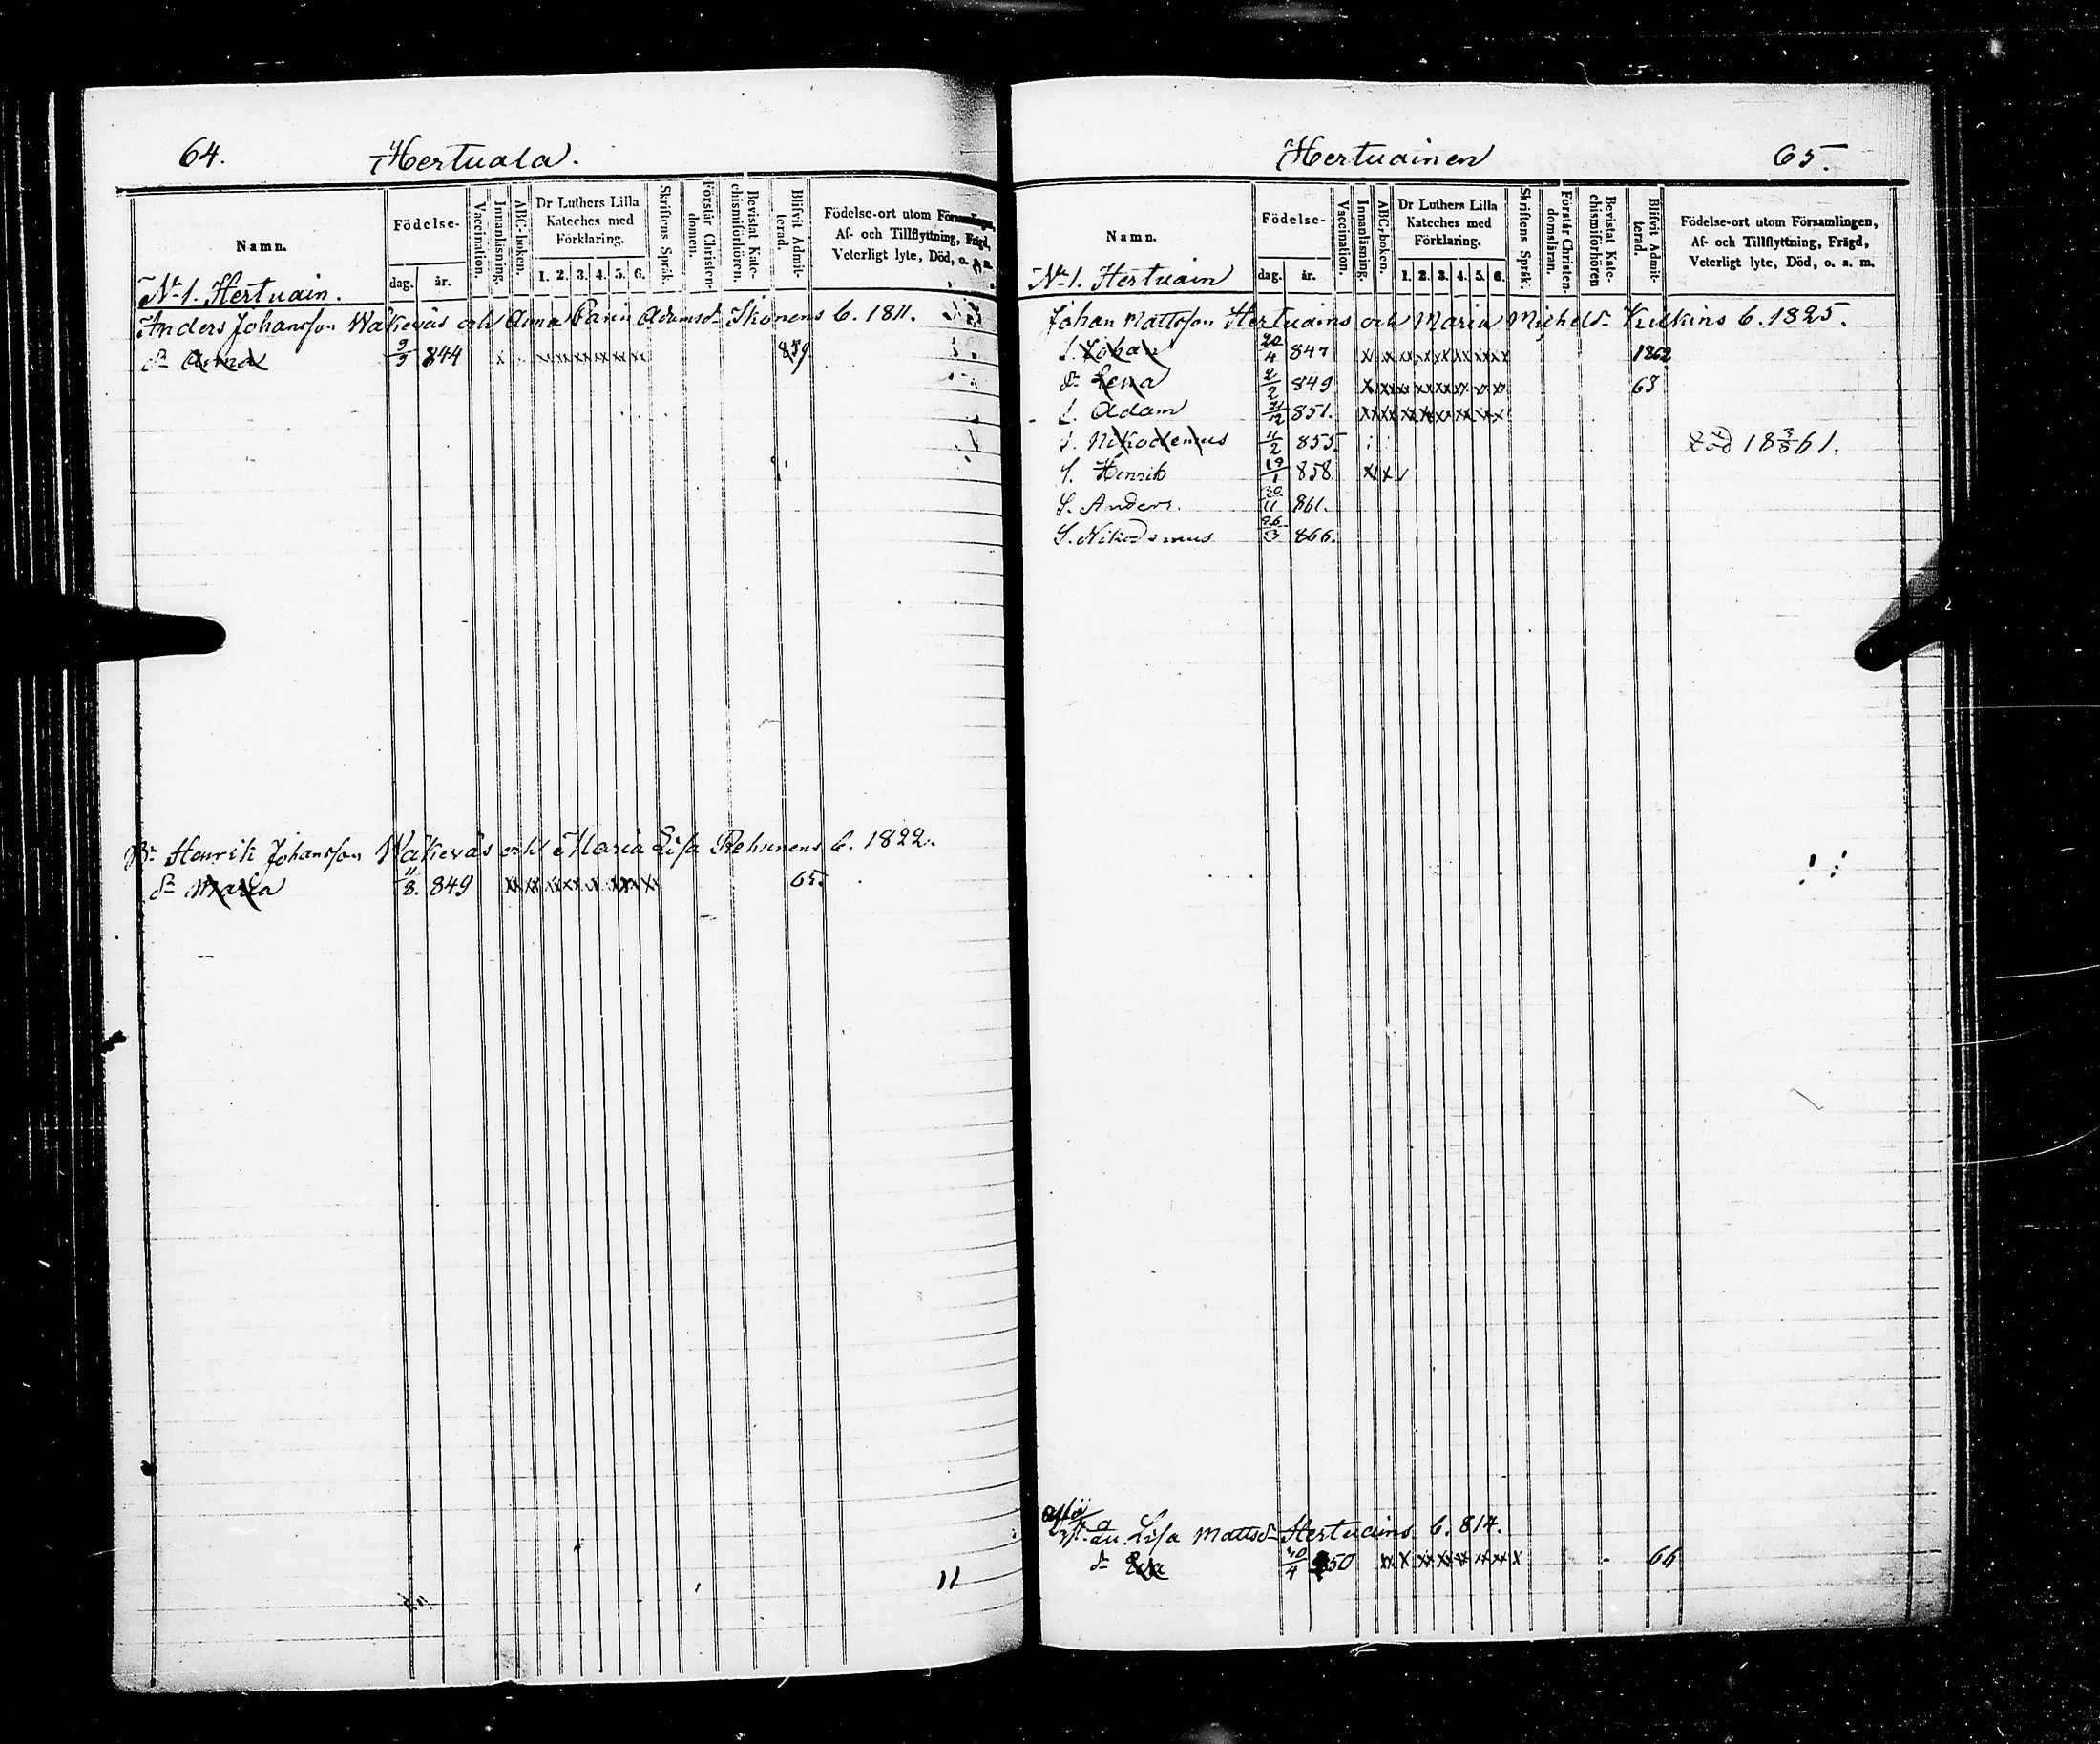 64. Hertuala.
Namn.
Födelse-
dag. år.
Vaccination.
Innanläsning.
ABC-boken.
Dr Luthers Lilla
Kateches med
Förklaring.
1. 2. 3. 4. 5. 6.
Skriftens Språk.
Förstår Christen-
domen.
Bevistat Kate-
chismiförhören.
Blifvit Admit-
terad.
Födelse-ort utom Församlingen,
Af- och Tillflyttning, Frägd,
Veterligt lyte, Död, o. a. m.
No 1. Hertuain.
Anders Johansson Wäkeväs och Anna Carin Adamsd. Ikonens b. 1811.
dr Anna 9/9 844 x xxxxxxxxxxx 859
Br Henrik Johansson Wäkeväs och Maria Lisa Rehunens b. 1822.
dr Maria 11/8. 849 65.
11
Hertuainen 65.
Namn.
Födelse-
dag. år.
Vaccination.
Innanläsning.
ABC-boken.
Dr Luthers Lilla
Kateches med
Förklaring.
1. 2. 3. 4. 5. 6.
Skriftens Språk.
Förstår Christen-
domsläran.
Bevistat Kate-
chismiförhören
Blifvit Admit-
terad.
Födelse-ort utom Församlingen,
Af- och Tillflyttning, Frägd,
Veterligt lyte, Död, o. a. m.
No 1. Hertuain
Johan Mattsson Hertuains och Maria Michelsdr Kulkins b. 1825.
S. Johan 20/4 847 1862
dr Lena 2/2 849 63
S. Adam 21/12 851.
S. Nikodemus 11/2 855 död 18 3/8 61.
S. Henrik 19/1 858. x x
S. Anders. 30/11 861.
S. Nikodemus 26/3 866.
Lisa Mattsdr Hertuains b. 814.
dr 4 850 66